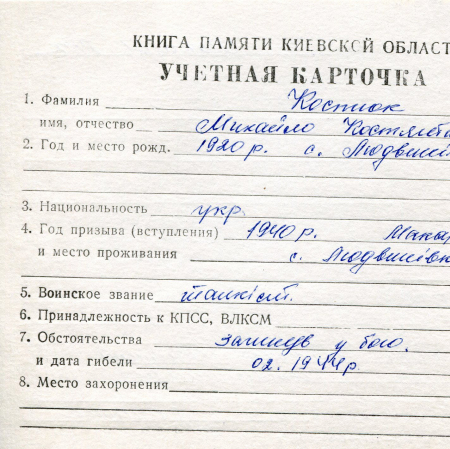 КНИГА ПАМЯТИ КИЕВСКОЙ ОБЛАСТ
УЧЕТНАЯ КАРТОЧКА
1. Фамилия Костюк
имя, отчество Михайло
2. Год и место рожд. 1920 р. с. Людви
3. Национальность укр.
4. Год призыва (вступления) 1940 р. Мака
и место проживания с.
5. Воинское звание танкіст.
6. Принадлежность к КПСС, ВЛКСМ
7. Обстоятельства загинув у бою.
и дата гибели 02. 1944р.
8. Место захоронения